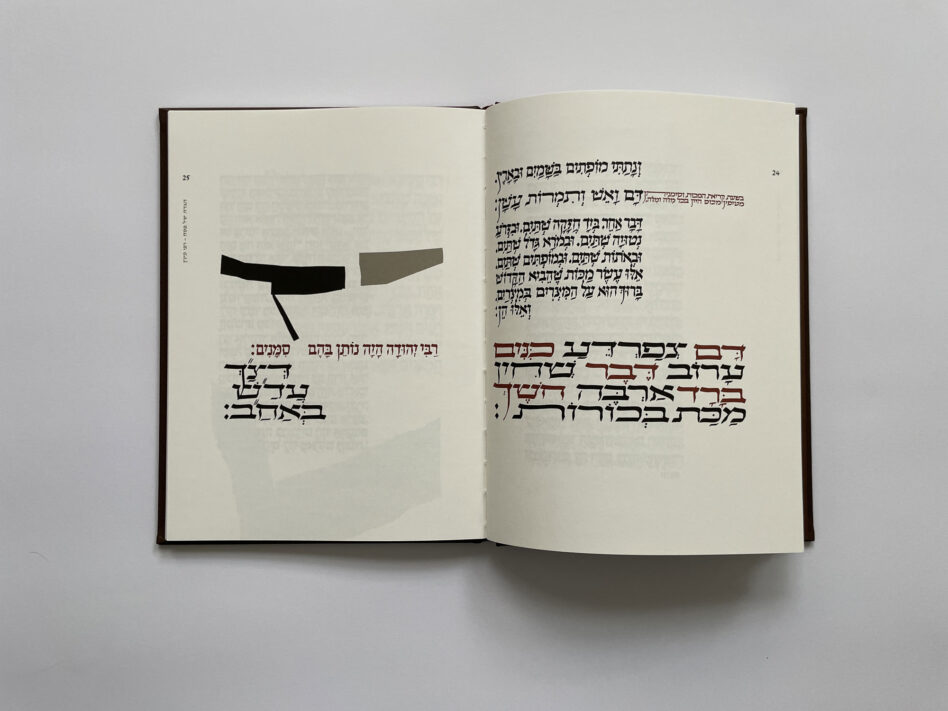 24
וְנָתַתִּי מוֹפְתִים בַּשָּׁמַיִם וּבָאָרֶץ:
דָּם וָאֵשׁ וְתִמְרוֹת עָשָׁן:
בשעת קריאת המכות וסימניהן
מטיפין מכוס היין בכל מלה ומלה.
דָּבָר אַחֵר. בְּיָד חֲזָקָה שְׁתַּיִם. וּבִזְרֹעַ
נְטוּיָה שְׁתַּיִם. וּבְמֹרָא גָּדֹל שְׁתַּיִם.
וּבְאֹתוֹת שְׁתַּיִם. וּבְמוֹפְתִים שְׁתַּיִם.
אֵלּוּ עֶשֶׂר מַכּוֹת שֶׁהֵבִיא הַקָּדוֹשׁ
בָּרוּךְ הוּא עַל הַמִּצְרִים בְּמִצְרַיִם.
וְאֵלּוּ הֵן:
דָּם צְפַרְדֵּעַ כִּנִּים
עָרוֹב דֶּבֶר שְׁחִין
בָּרָד אַרְבֶּה חֹשֶׁךְ
מַכַּת בְּכוֹרוֹת:
25
הגדה של פסח -
רַבִּי יְהוּדָה הָיָה נוֹתֵן בָּהֶם סִמָּנִים:
דְּצַ״ךְ
עַדַ״שׁ
בְּאַחַ״ב: